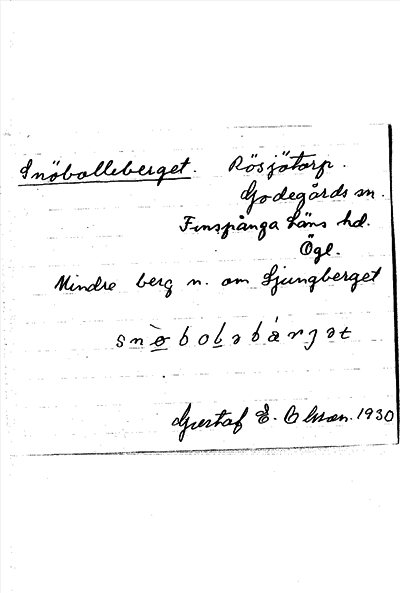 Snöbolleberget. Rösjötorp.
Godegårds sn.
Finspånga läns hd.
Ögl.
Mindre berg n. om Ljungberget
snø̀boləbárjət
Gustaf E. Olsson. 1930